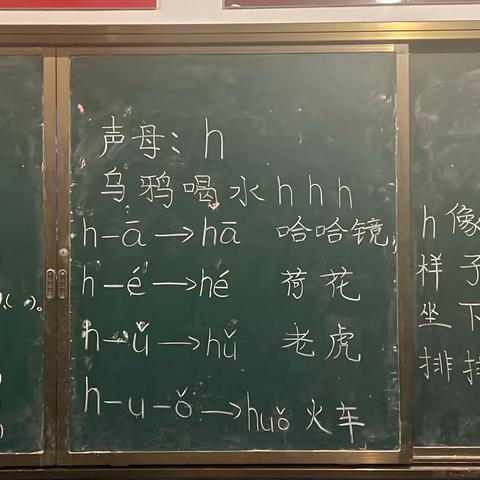 声母：h
乌鸦喝水 h h h
h-ā→hā 哈哈镜
h-é→hé 荷花
h-ǔ→hǔ 老虎
h-u-ǒ→huǒ 火车
h像
样子
坐下
排排